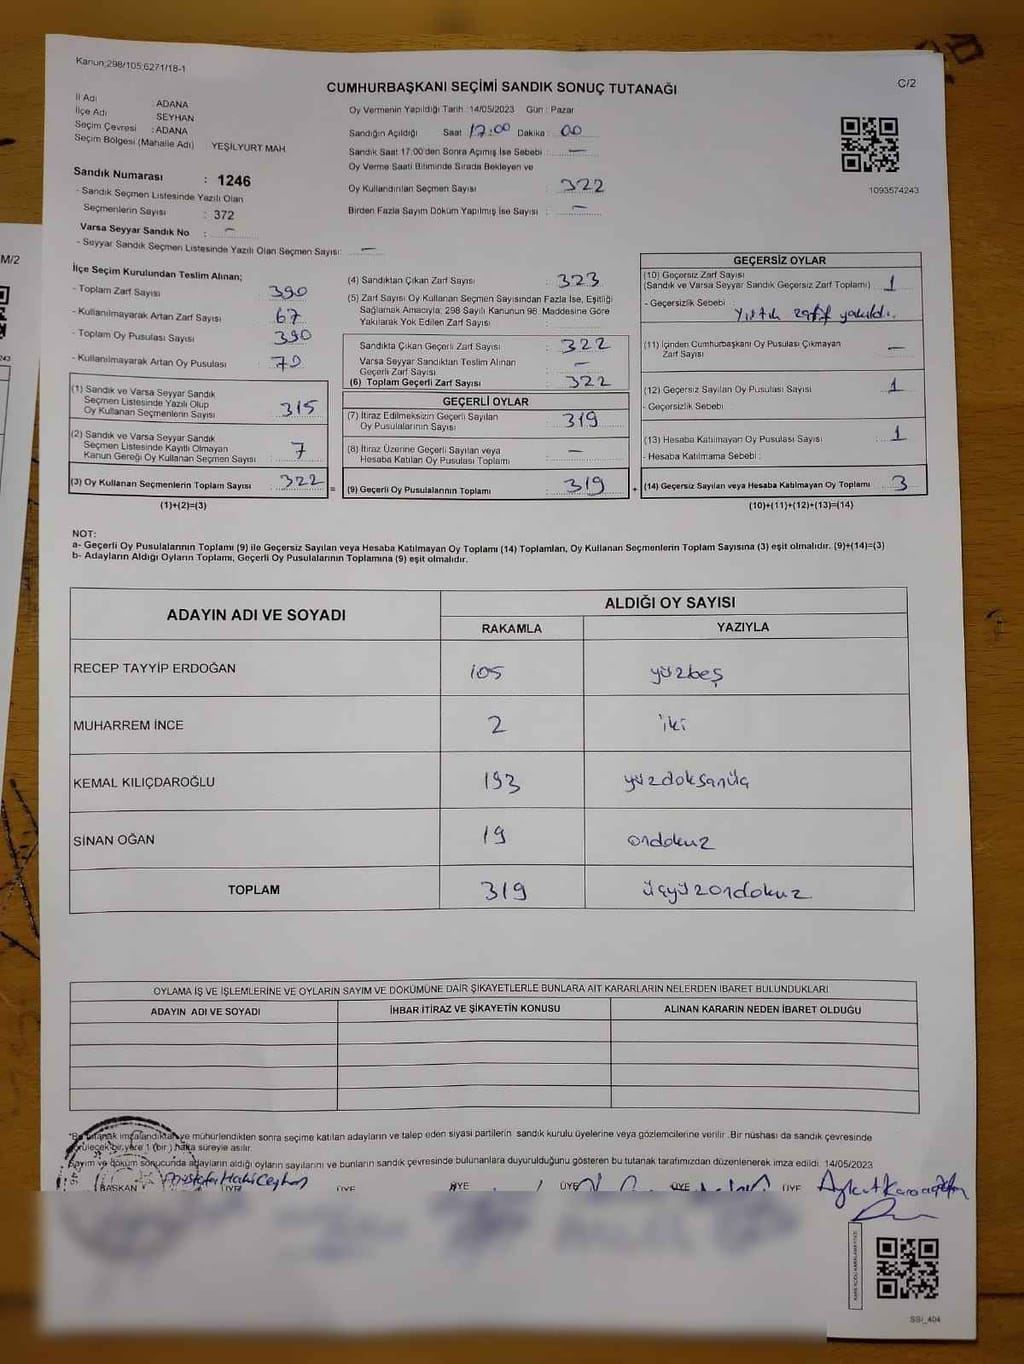 Kanun;298/105;6271/18-1
C/2
CUMHURBAŞKANI SEÇİMİ SANDIK SONUÇ TUTANAĞI
İl Adı : ADANA
İlçe Adı SEYHAN
Seçim Çevresi : ADANA
Seçim Bölgesi (Mahalle Adı) YEŞİLYURT MAH.
Sandık Numarası : 1246
- Sandık Seçmen Listesinde Yazılı Olan
Seçmenlerin Sayısı : 372
Varsa Seyyar Sandık No : -
- Seyyar Sandık Seçmen Listesinde Yazılı Olan Seçmen Sayısı: -
Oy Vermenin Yapıldığı Tarih : 14/05/2023 Gün : Pazar
Sandığın Açıldığı Saat 17:00 Dakika : 00
Sandık Saat 17:00'den Sonra Açımış İse Sebebi : -
Oy Verme Saati Bitiminde Sırada Bekleyen ve
Oy Kullandırılan Seçmen Sayısı : 322
Birden Fazla Sayım Döküm Yapılmış İse Sayısı : -
1093574243
M/2
243
İlçe Seçim Kurulundan Teslim Alınan;
- Toplam Zarf Sayısı : 390
- Kullanılmayarak Artan Zarf Sayısı : 67
- Toplam Oy Pusulası Sayısı : 390
- Kullanılmayarak Artan Oy Pusulası : 70
(1) Sandık ve Varsa Seyyar Sandık
Seçmen Listesinde Yazılı Olup
Oy Kullanan Seçmenlerin Sayısı : 315
(2) Sandık ve Varsa Seyyar Sandık
Seçmen Listesinde Kayıtlı Olmayan
Kanun Gereği Oy Kullanan Seçmen Sayısı : 7
(3) Oy Kullanan Seçmenlerin Toplam Sayısı : 322
(1)+(2)=(3)
(4) Sandıktan Çıkan Zarf Sayısı : 323
(5) Zarf Sayısı Oy Kullanan Seçmen Sayısından Fazla İse, Eşitliği
Sağlamak Amacıyla; 298 Sayılı Kanunun 98. Maddesine Göre
Yakılarak Yok Edilen Zarf Sayısı :
Sandıkta Çıkan Geçerli Zarf Sayısı : 322
Varsa Seyyar Sandıktan Teslim Alınan
Geçerli Zarf Sayısı : -
(6) Toplam Geçerli Zarf Sayısı : 322
GEÇERLİ OYLAR
(7) İtiraz Edilmeksizin Geçerli Sayılan
Oy Pusulalarının Sayısı : 319
(8) İtiraz Üzerine Geçerli Sayılan veya
Hesaba Katılan Oy Pusulası Toplamı : -
= (9) Geçerli Oy Pusulalarının Toplamı : 319
GEÇERSİZ OYLAR
(10) Geçersiz Zarf Sayısı
(Sandık ve Varsa Seyyar Sandık Geçersiz Zarf Toplamı) : 1
- Geçersizlik Sebebi :
Yırtık zarf yakıldı.
(11) İçinden Cumhurbaşkanı Oy Pusulası Çıkmayan
Zarf Sayısı : -
(12) Geçersiz Sayılan Oy Pusulası Sayısı : 1
- Geçersizlik Sebebi :
(13) Hesaba Katılmayan Oy Pusulası Sayısı : 1
- Hesaba Katılmama Sebebi :
+ (14) Geçersiz Sayılan veya Hesaba Katılmayan Oy Toplamı : 3
(10)+(11)+(12)+(13)=(14)
NOT:
a- Geçerli Oy Pusulalarının Toplamı (9) ile Geçersiz Sayılan veya Hesaba Katılmayan Oy Toplamı (14) Toplamları, Oy Kullanan Seçmenlerin Toplam Sayısına (3) eşit olmalıdır. (9)+(14)=(3)
b- Adayların Aldığı Oyların Toplamı, Geçerli Oy Pusulalarının Toplamına (9) eşit olmalıdır.
ADAYIN ADI VE SOYADI ALDIĞI OY SAYISI
RAKAMLA YAZIYLA
RECEP TAYYİP ERDOĞAN 105 yüzbeş
MUHARREM İNCE 2 iki
KEMAL KILIÇDAROĞLU 193 yüzdoksanüç
SİNAN OĞAN 19 ondokuz
TOPLAM 319 üçyüzondokuz
OYLAMA İŞ VE İŞLEMLERİNE VE OYLARIN SAYIM VE DÖKÜMÜNE DAİR ŞİKAYETLERLE BUNLARA AİT KARARLARIN NELERDEN İBARET BULUNDUKLARI
ADAYIN ADI VE SOYADI İHBAR İTİRAZ VE ŞİKAYETİN KONUSU ALINAN KARARIN NEDEN İBARET OLDUĞU
imzalandıktan ve mühürlendikten sonra seçime katılan adayların ve talep eden siyasi partilerin sandık kurulu üyelerine veya gözlemcilerine verilir. Bir nüshası da sandık çevresinde
görülecek bir yere 1 (bir) hafta süreyle asılır.
Sayım ve döküm sonucunda adayların aldığı oyların sayılarını ve bunların sandık çevresinde bulunanlara duyurulduğunu gösteren bu tutanak tarafımızdan düzenlenerek imza edildi. 14/05/2023
BAŞKAN ÜYE ÜYE ÜYE ÜYE ÜYE ÜYE
SSİ_404